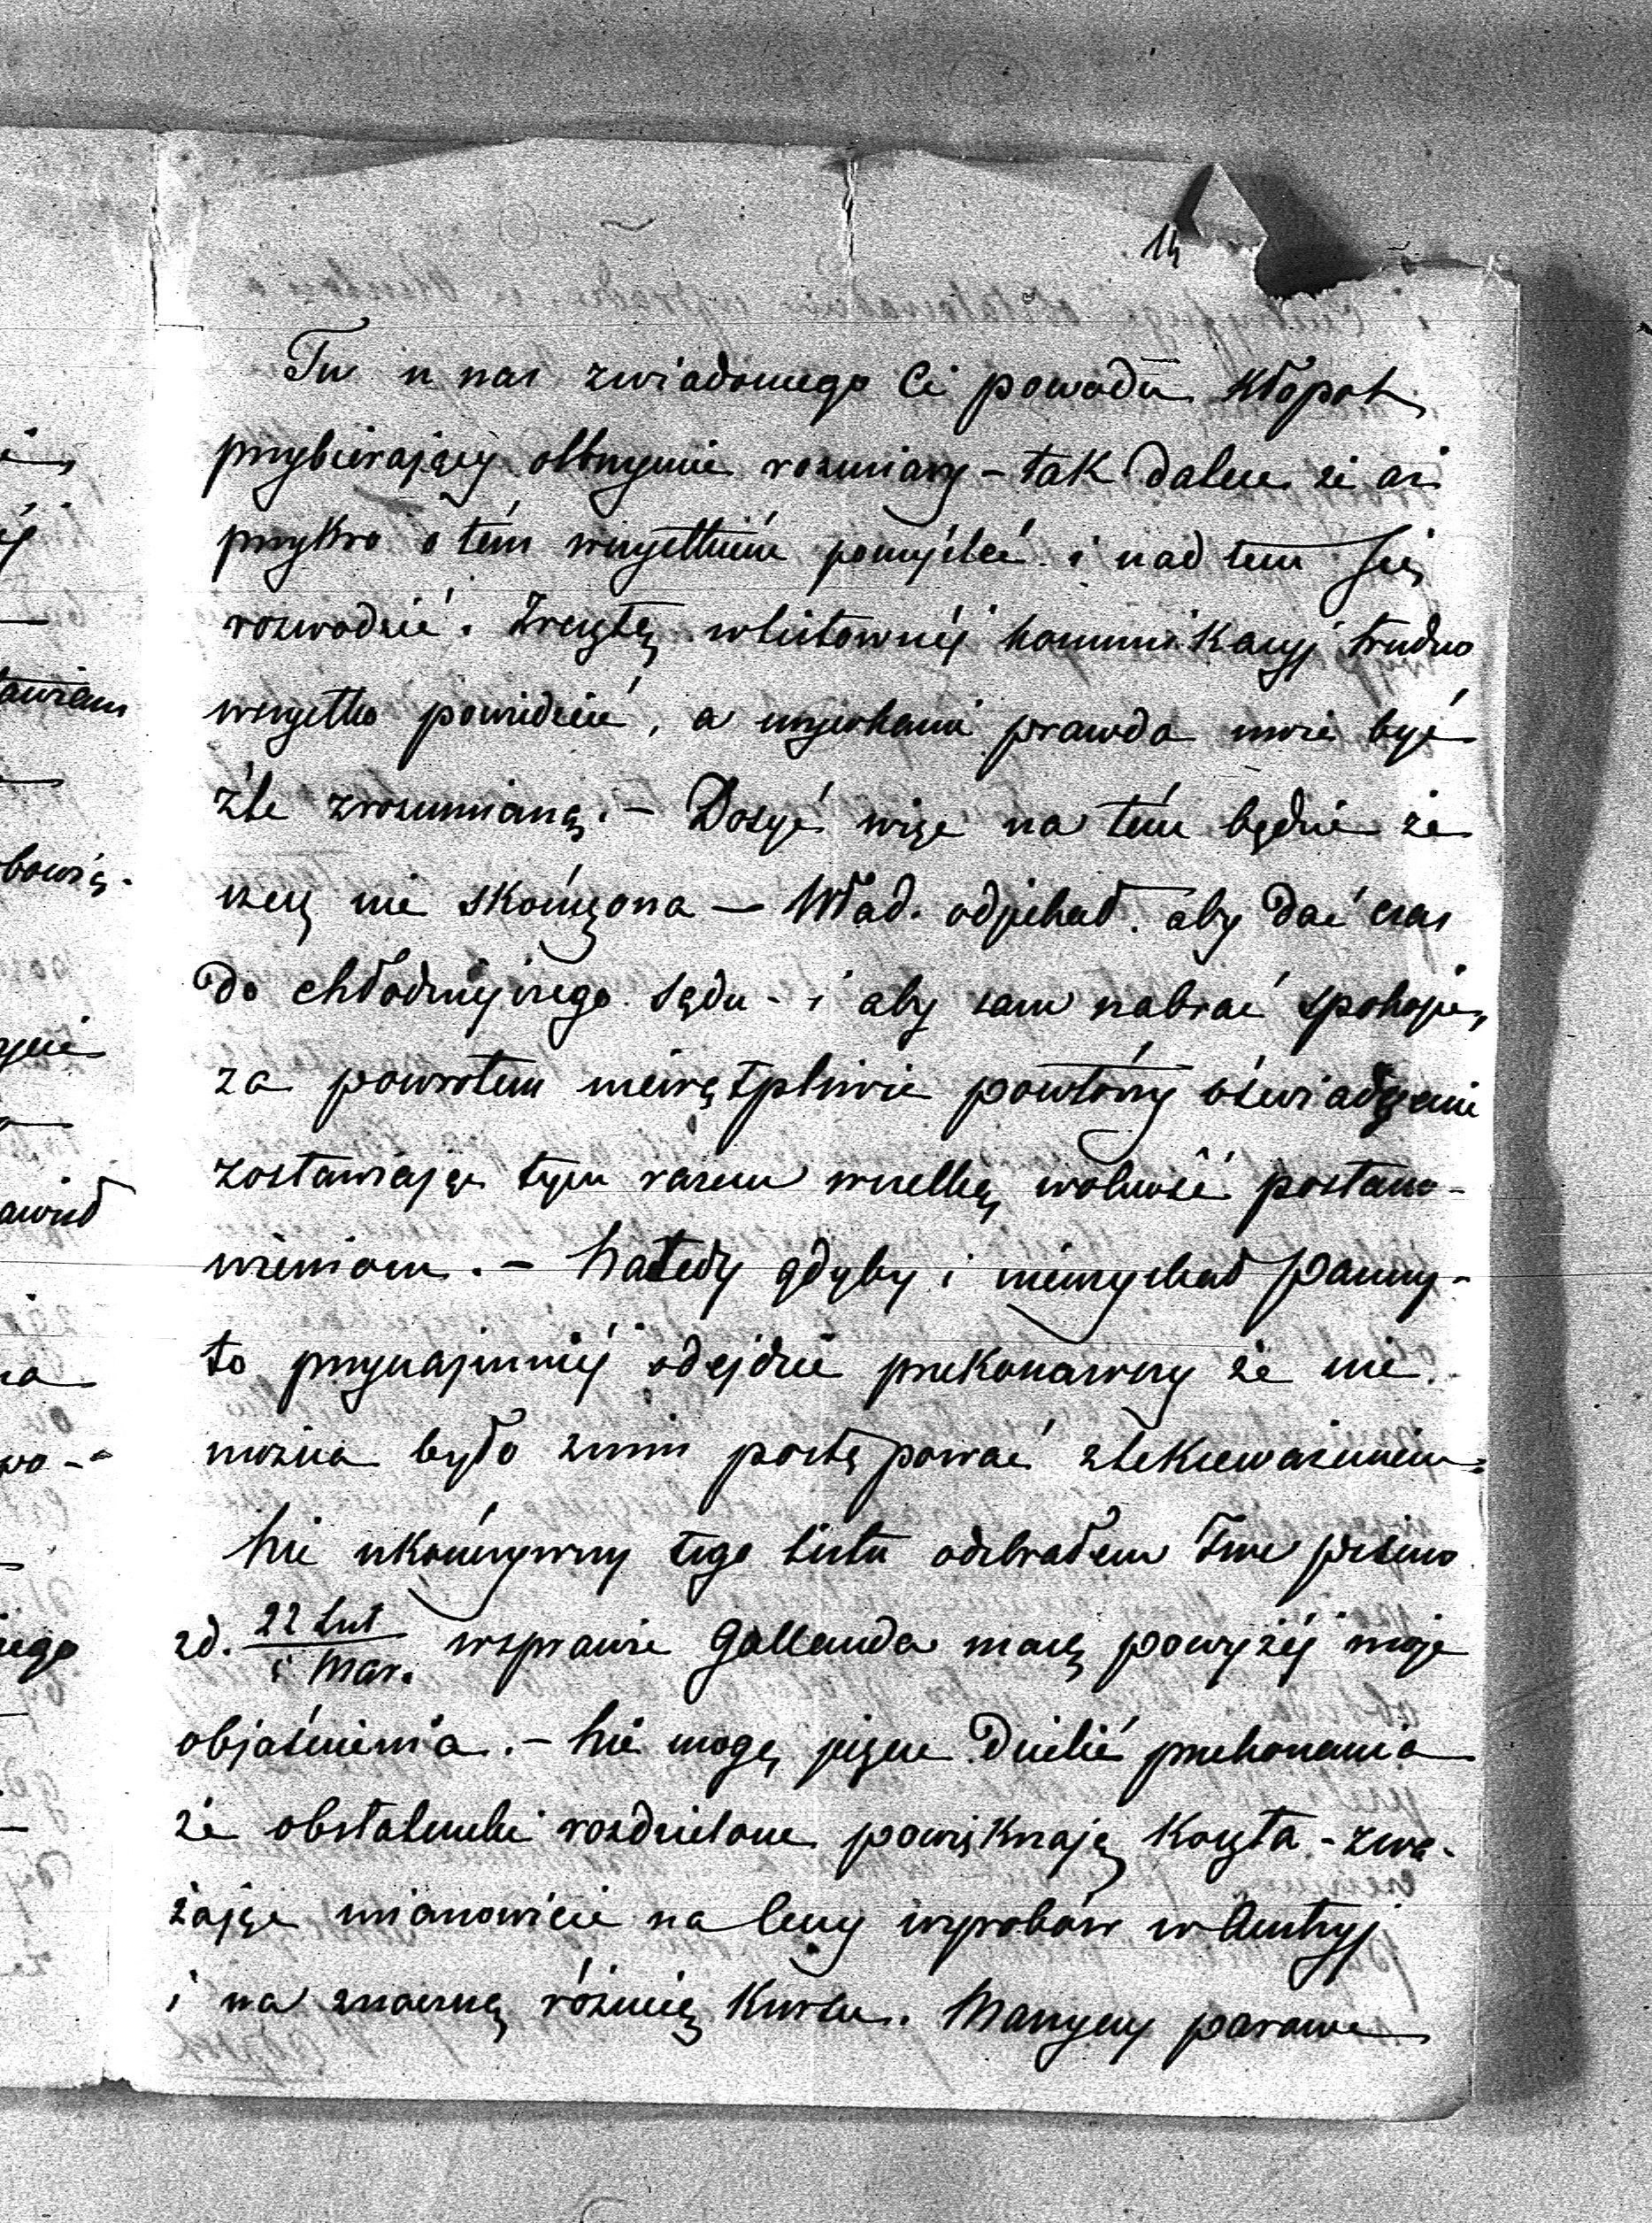 14
Tu u nas zwiadomego Ci powodu kłopot
przybierający olbrzymie rozmiary – tak dalece że aż
przykro o tém wszystkiém pomyśleć i nad tem się
rozwodzić. Zresztą wlistownéj kommunikacyj trudno
wszystko powiedzieć, a niejechana prawda może być
źle zrozumianą. – Dosyć więc na tém będzie że
rzecz nie skończona – Wład. odjechał aby dać czas
do chłodniejszego sądu – i aby sam nabrać spokoju,
za powrotem niewątpliwie powtórzy oświadczenie
zostawiając tym razem wszelką wolność postano-
wieniom. – Natedy gdyby i niewzychał Panny –
to przynajmniéj odejdzie przekonawszy że nie
można było znim postępować zlekceważeniem.
Nie ukończywszy tego listu odebrałem Twe pismo
zd. 22 Lut / 5 Mar. wsprawie Gallanda masz powyżéj moje
objaśnienia. – Nie mogę jeszcze dzielić przekonania
że obstalunki rozdzielone powiększają koszta – zwa-
żając mianowicie na ceny wyrobów w Austryj
i na znaczną różnicę kursu. Maszyny parowe